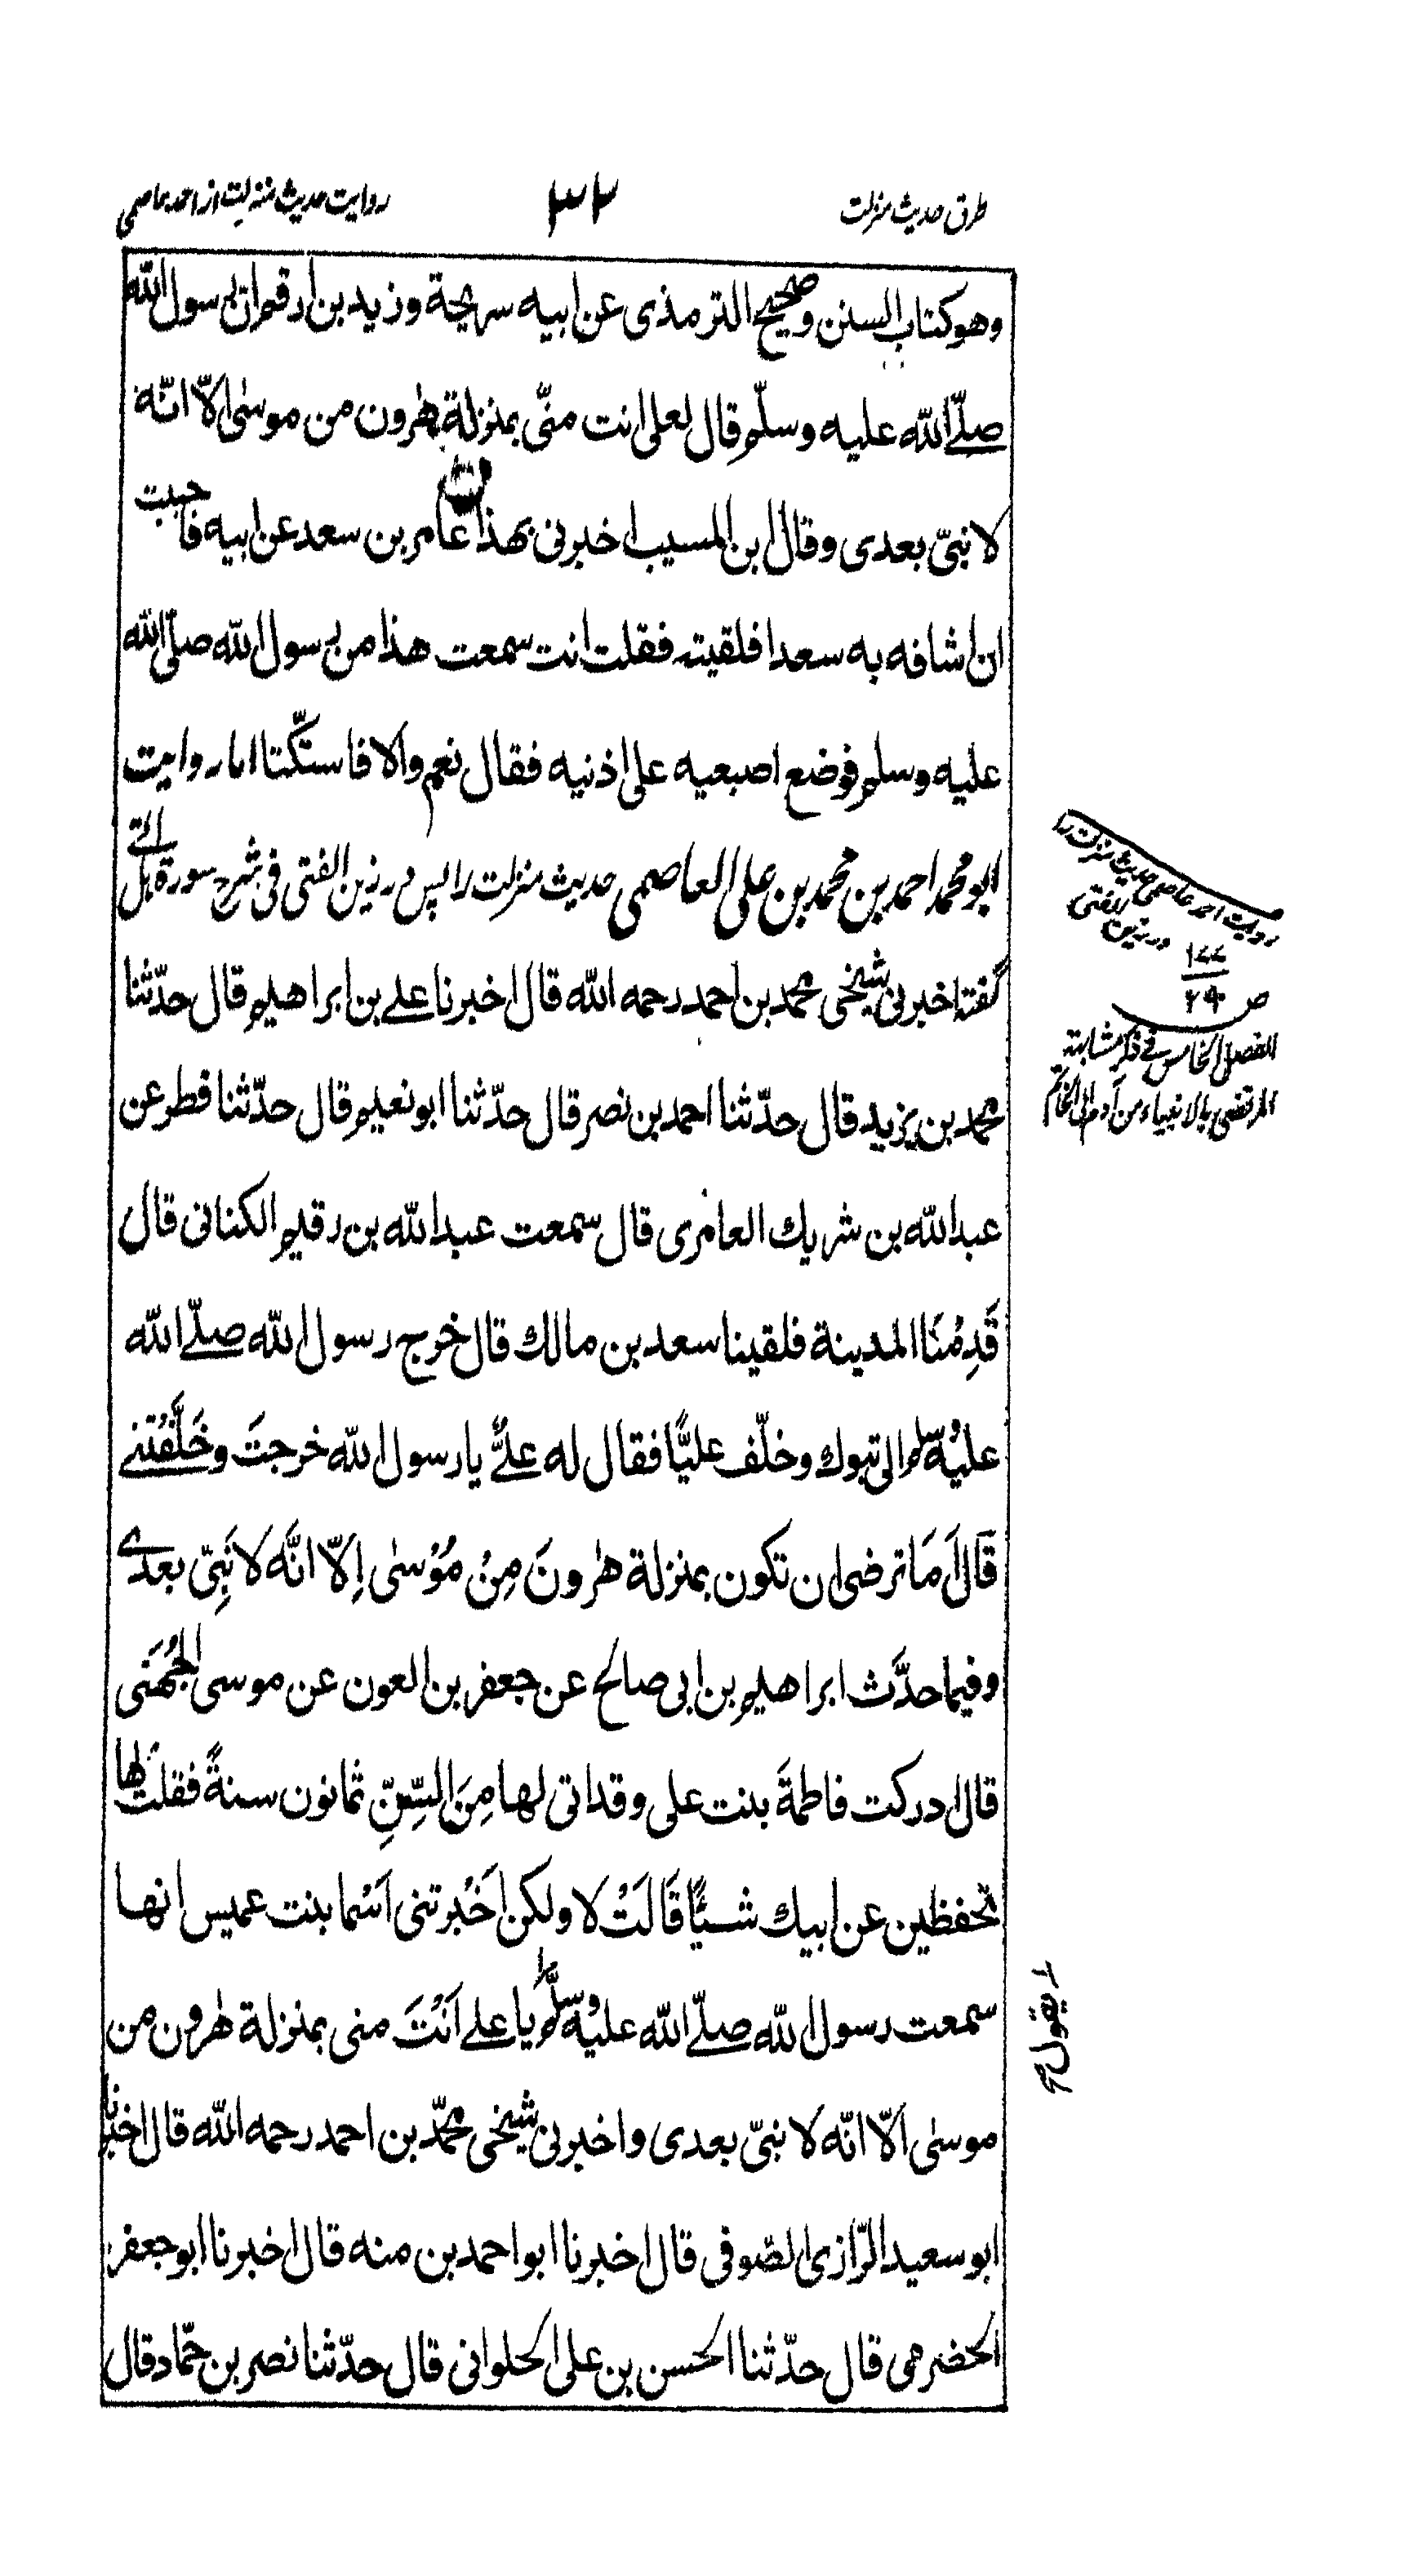 طرق حدیث منزلت
۳۲
روایت حدیث منزلت از احمد عاصمی
وهو کتاب السنن وصحیح الترمذی عن ابیه سریحة وزید بن ارقم ان رسول الله
صلّے الله علیه وسلّم قال لعلی انت منّی بمنزلة هٰرون من موسٰی الّا انّه
لا نبیّ بعدی وقال ابن المسیب اخبرنی بهذا عامر بن سعد عن ابیه فاحببت
ان اشافه به سعدا فلقیته فقلت انت سمعت هذا من رسول الله صلّی الله
علیه وسلم فوضع اصبعیه علی اذنیه فقال نعم والا فاستکّتا اما روایت
ابو محمد احمد بن محمد بن علی العاصمی حدیث منزلت را پس در زین الفتی فی شرح سورة هل اتے
گفته اخبرنی شیخی محمد بن احمد رحمه الله قال اخبرنا علے بن ابراهیم قال حدّثنا
محمد بن یزید قال حدّثنا احمد بن نصر قال حدّثنا ابو نعیم قال حدّثنا فطر عن
عبد الله بن شریك العامری قال سمعت عبد الله بن رقیم الکنانی قال
قَدِمْنَا المدینة فلقینا سعد بن مالك قال خرج رسول الله صلّے الله
علیْه وسلّم الی تبوك وخلّف علیًّا فقال له علیٌّ یا رسول الله خرجتَ وخَلَّفْتنے
قَالَ اَمَا ترضی ان تکون بمنزلة هٰرونَ مِنْ مُوْسٰی اِلّا انَّه لا نَبِیّ بعدے
وفیما حدَّث ابراهیم بن ابی صالح عن جعفر بن العون عن موسی الجُهَنی
قال ادرکت فاطمةَ بنت علی وقد اتی لها مِنَ السِّنِّ ثمانون سنةً فقلت لها
تحفظین عن ابیك شیئًا قَالَتْ لا ولکن اَخْبرتنی اَسْما بنت عمیس انها
سمعت رسول الله صلّے الله علیْه وسلّم یا علے اَنْتَ منی بمنزلة هٰرون من
موسٰی الّا انّه لا نبیّ بعدی واخبرنی شیخی محمّد بن احمد رحمه الله قال اخبرنا
ابو سعید الرّازی الصّوفی قال اخبرنا ابو احمد بن منه قال اخبرنا ابو جعفر
الحضرمی قال حدّثنا الحسن بن علی الحلوانی قال حدّثنا نصر بن حمّاد قال
روایت احمد عاصمی حدیث منزلت را
در زین الفتی
ص
الفصل الخامس فی ذکر مشابهة
المرتضی بالانبیاء من آدم الی الخاتم
یقول